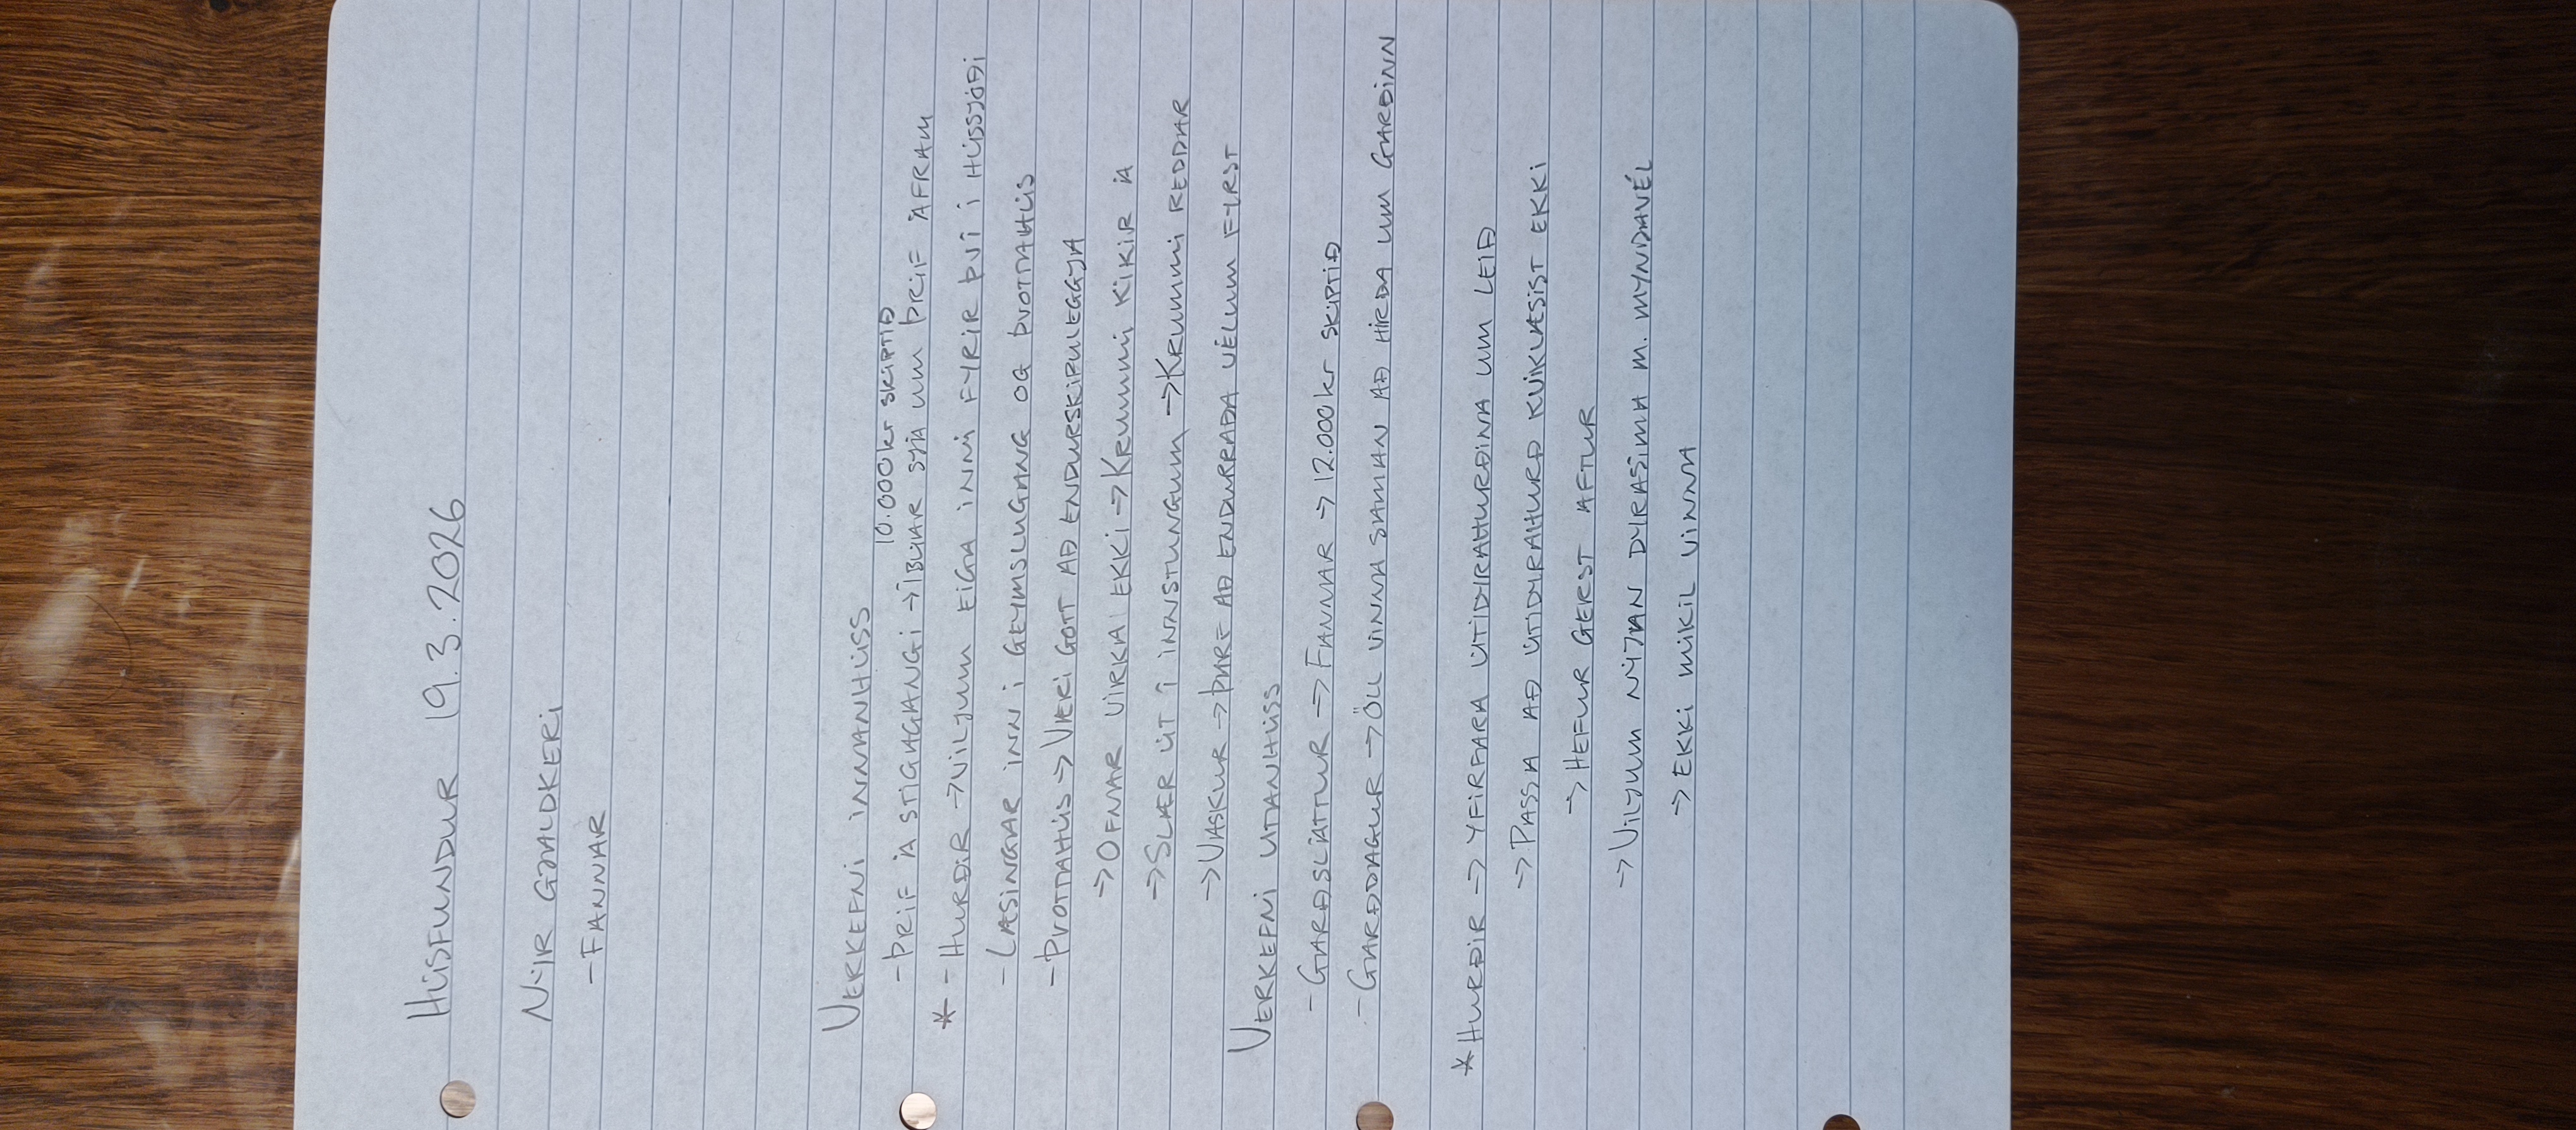 HÚSFUNDUR 19.3.2026
NÝIR GJALDKERI
- FANNAR
VERKEFNI INNANHÚSS
10.000kr SKIPTIÐ
- ÞRIF Á STIGAGANGI → ÍBÚAR SJÁ UM ÞRIF ÁFRAM
* - HURÐIR → VILJUM EIGA INNI FYRIR ÞVÍ Í HÚSSJÓÐI
- LÆSINGAR INN Í GEYMSLUGANG OG ÞVOTTAHÚS
- ÞVOTTAHÚS → VÆRI GOTT AÐ ENDURSKIPULEGGJA
→ OFNAR VIRKA EKKI → KRUMMI KÍKIR Á
→ SLÆR ÚT Í INNSTUNGUM → KRUMMI REDDAR
→ VASKUR → ÞARF AÐ ENDURRAÐA VÉLUM FYRST
VERKEFNI UTANHÚSS
- GARÐSLÁTTUR → FANNAR → 12.000kr SKIPTIÐ
- GARÐDAGUR → ÖLL VINNA SAMAN AÐ HIRÐA UM GARÐINN
* HURÐIR → YFIRFARA ÚTIDYRAHURÐINA UM LEIÐ
→ PASSA AÐ ÚTIDYRAHURÐ KVIKLÆSIST EKKI
→ HEFUR GERST AFTUR
→ VILJUM NÝJAN DYRASÍMA M. MYNDAVÉL
→ EKKI MIKIL VINNA